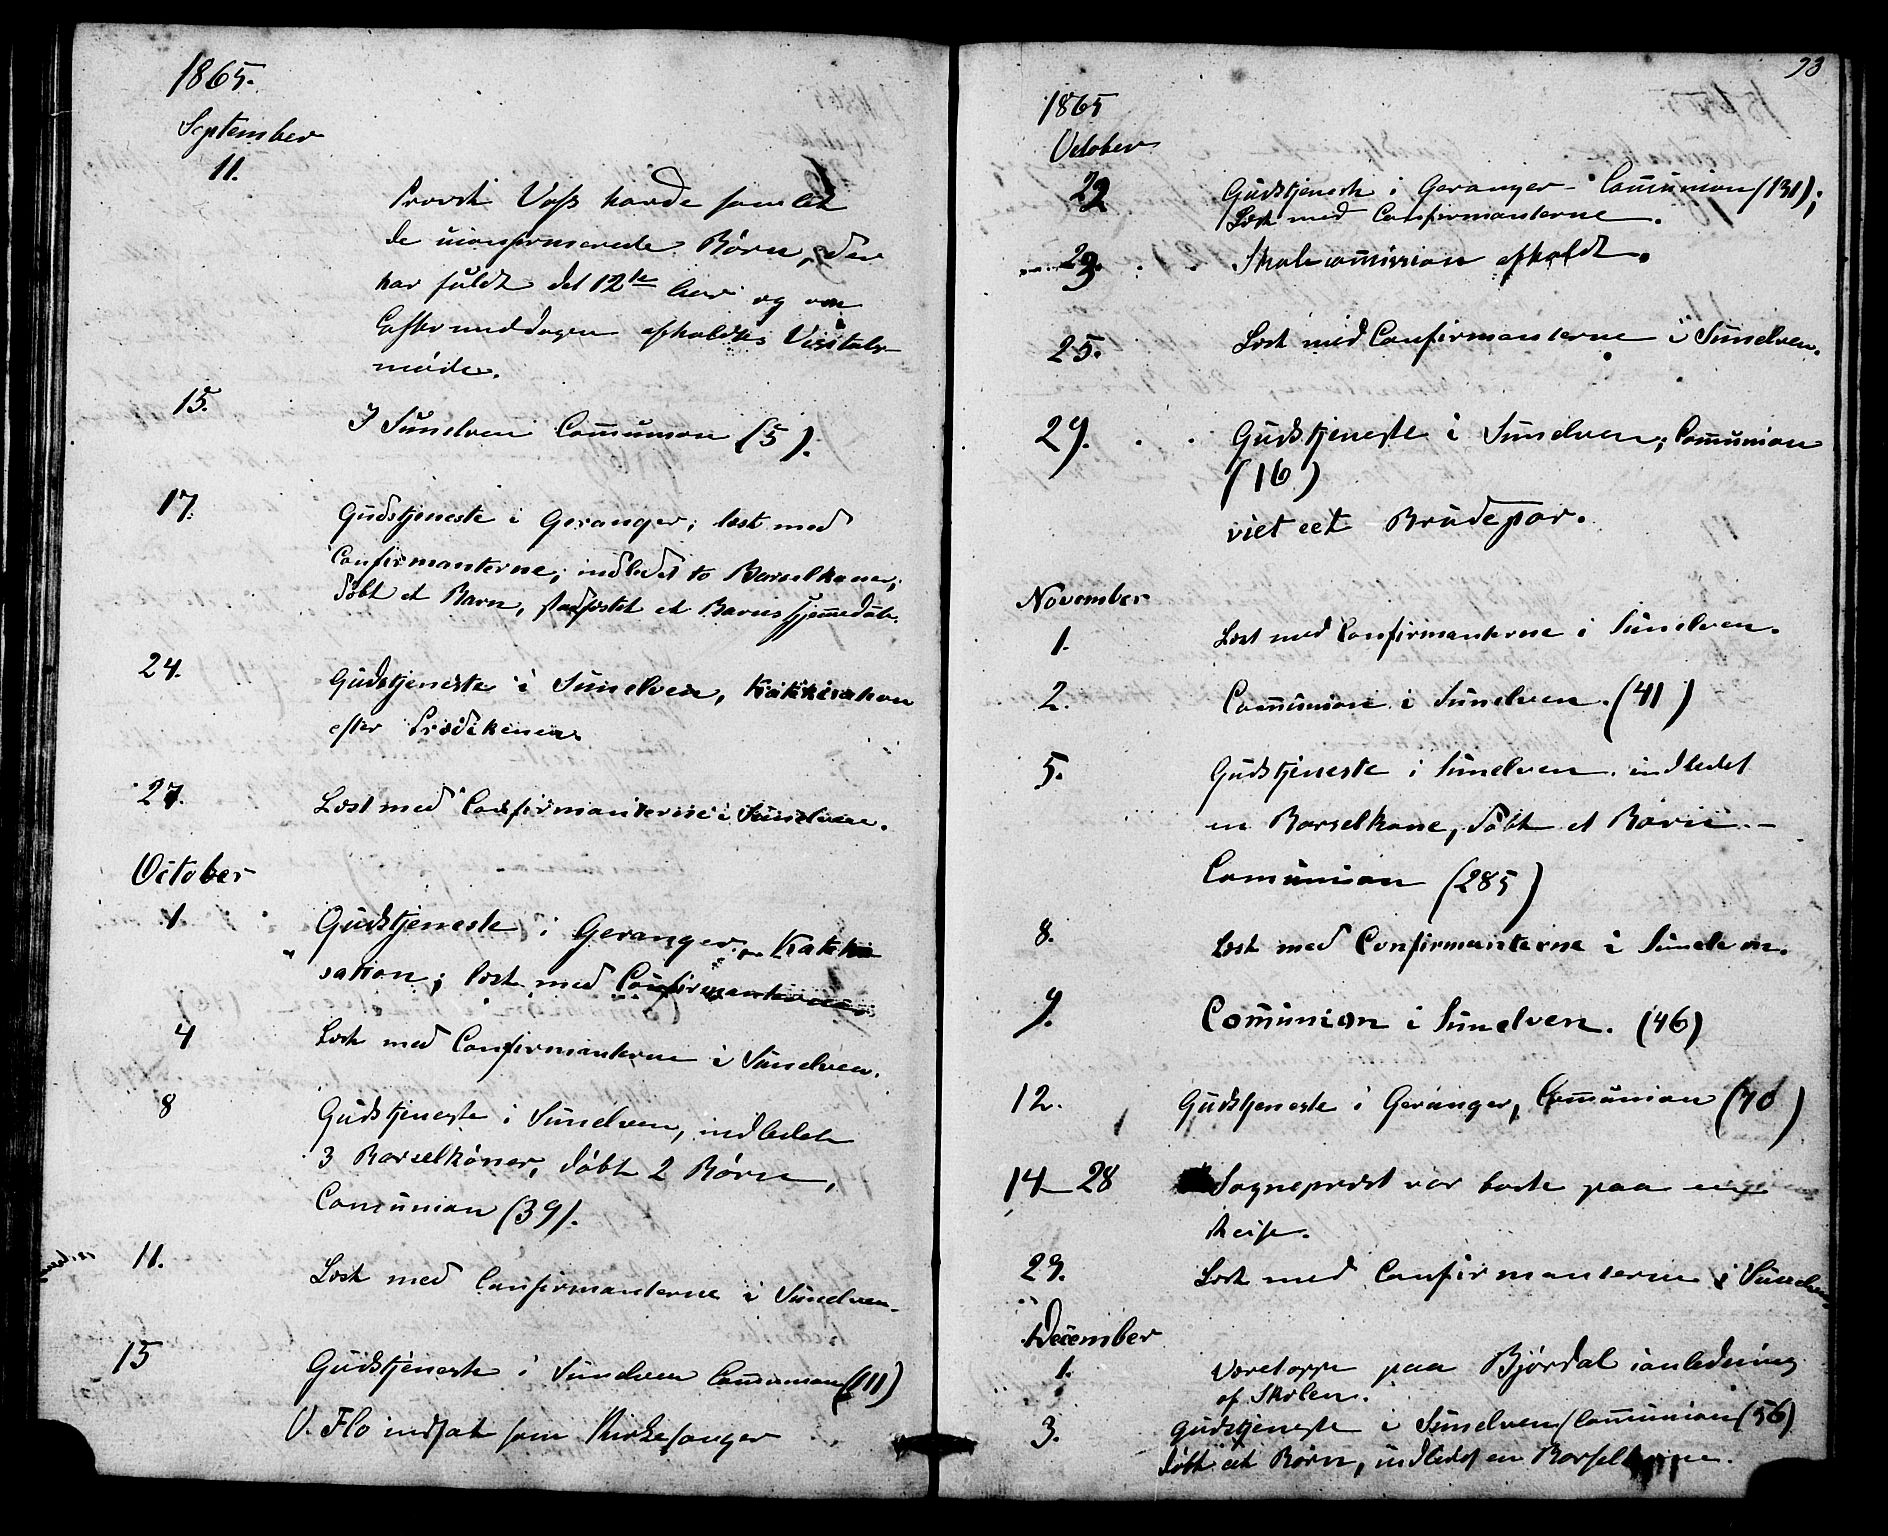 1865.
September
11.
Provst Voss havde samlet
de uconfirmerede Børn, der
har fuldt det 12te Aar og om
Eftermiddagen afholdtes Visitats-
møde.
15.
I Sunelven Communion (5).
17.
Gudstjeneste i Geranger; læst med
Confirmanterne; indledet to Barselkoner;
døbt et Barn, stadfæstet et Barns Hjemmedåb.
24.
Gudstjeneste i Sunelven, Katekisation
efter Prædikenen.
27.
Læst med Confirmanterne i Sunelven.
October
1
Gudstjeneste i Geranger, Kateki
sation; læst med Confirmanterne
4
Læst med Confirmanterne i Sunelven.
8
Gudstjeneste i Sunelven, indledet
3 Barselkoner, døbt 2 Børn,
Communion (39).
11.
Læst med Confirmanterne i Sunelven.
15
Gudstjeneste i Sunelven Communion (111)
O. Flo indsat som Kirkesanger
93
1865
October
22
Gudstjeneste i Geranger - Communion (131);
Læst med Confirmanterne.
23.
Skolecommission afholdt.
25.
Læst med Confirmanterne i Sunelven.
29.
Gudstjeneste i Sunelven; Communion
(16)
viet eet Brudepar.
November
1.
Læst med Confirmanterne i Sunelven.
2.
Communion i Sunelven. (41)
5.
Gudstjeneste i Sunelven. indledet
en Barselkone, døbt et Barn -
Communion (285)
8.
Læst med Confirmanterne i Sunelven.
9.
Communion i Sunelven. (46)
12.
Gudstjeneste i Geranger, Communion (70)
14-28
Sognepræst var borte paa en
Reise.
29.
Læst med Confirmanterne i Sunelven
December
1.
Været oppe paa Bjørdal i anledning
af Skolen.
3.
Gudstjeneste i Sunelven Communion (56)
døbt eet Barn, indledet en Barselkone.